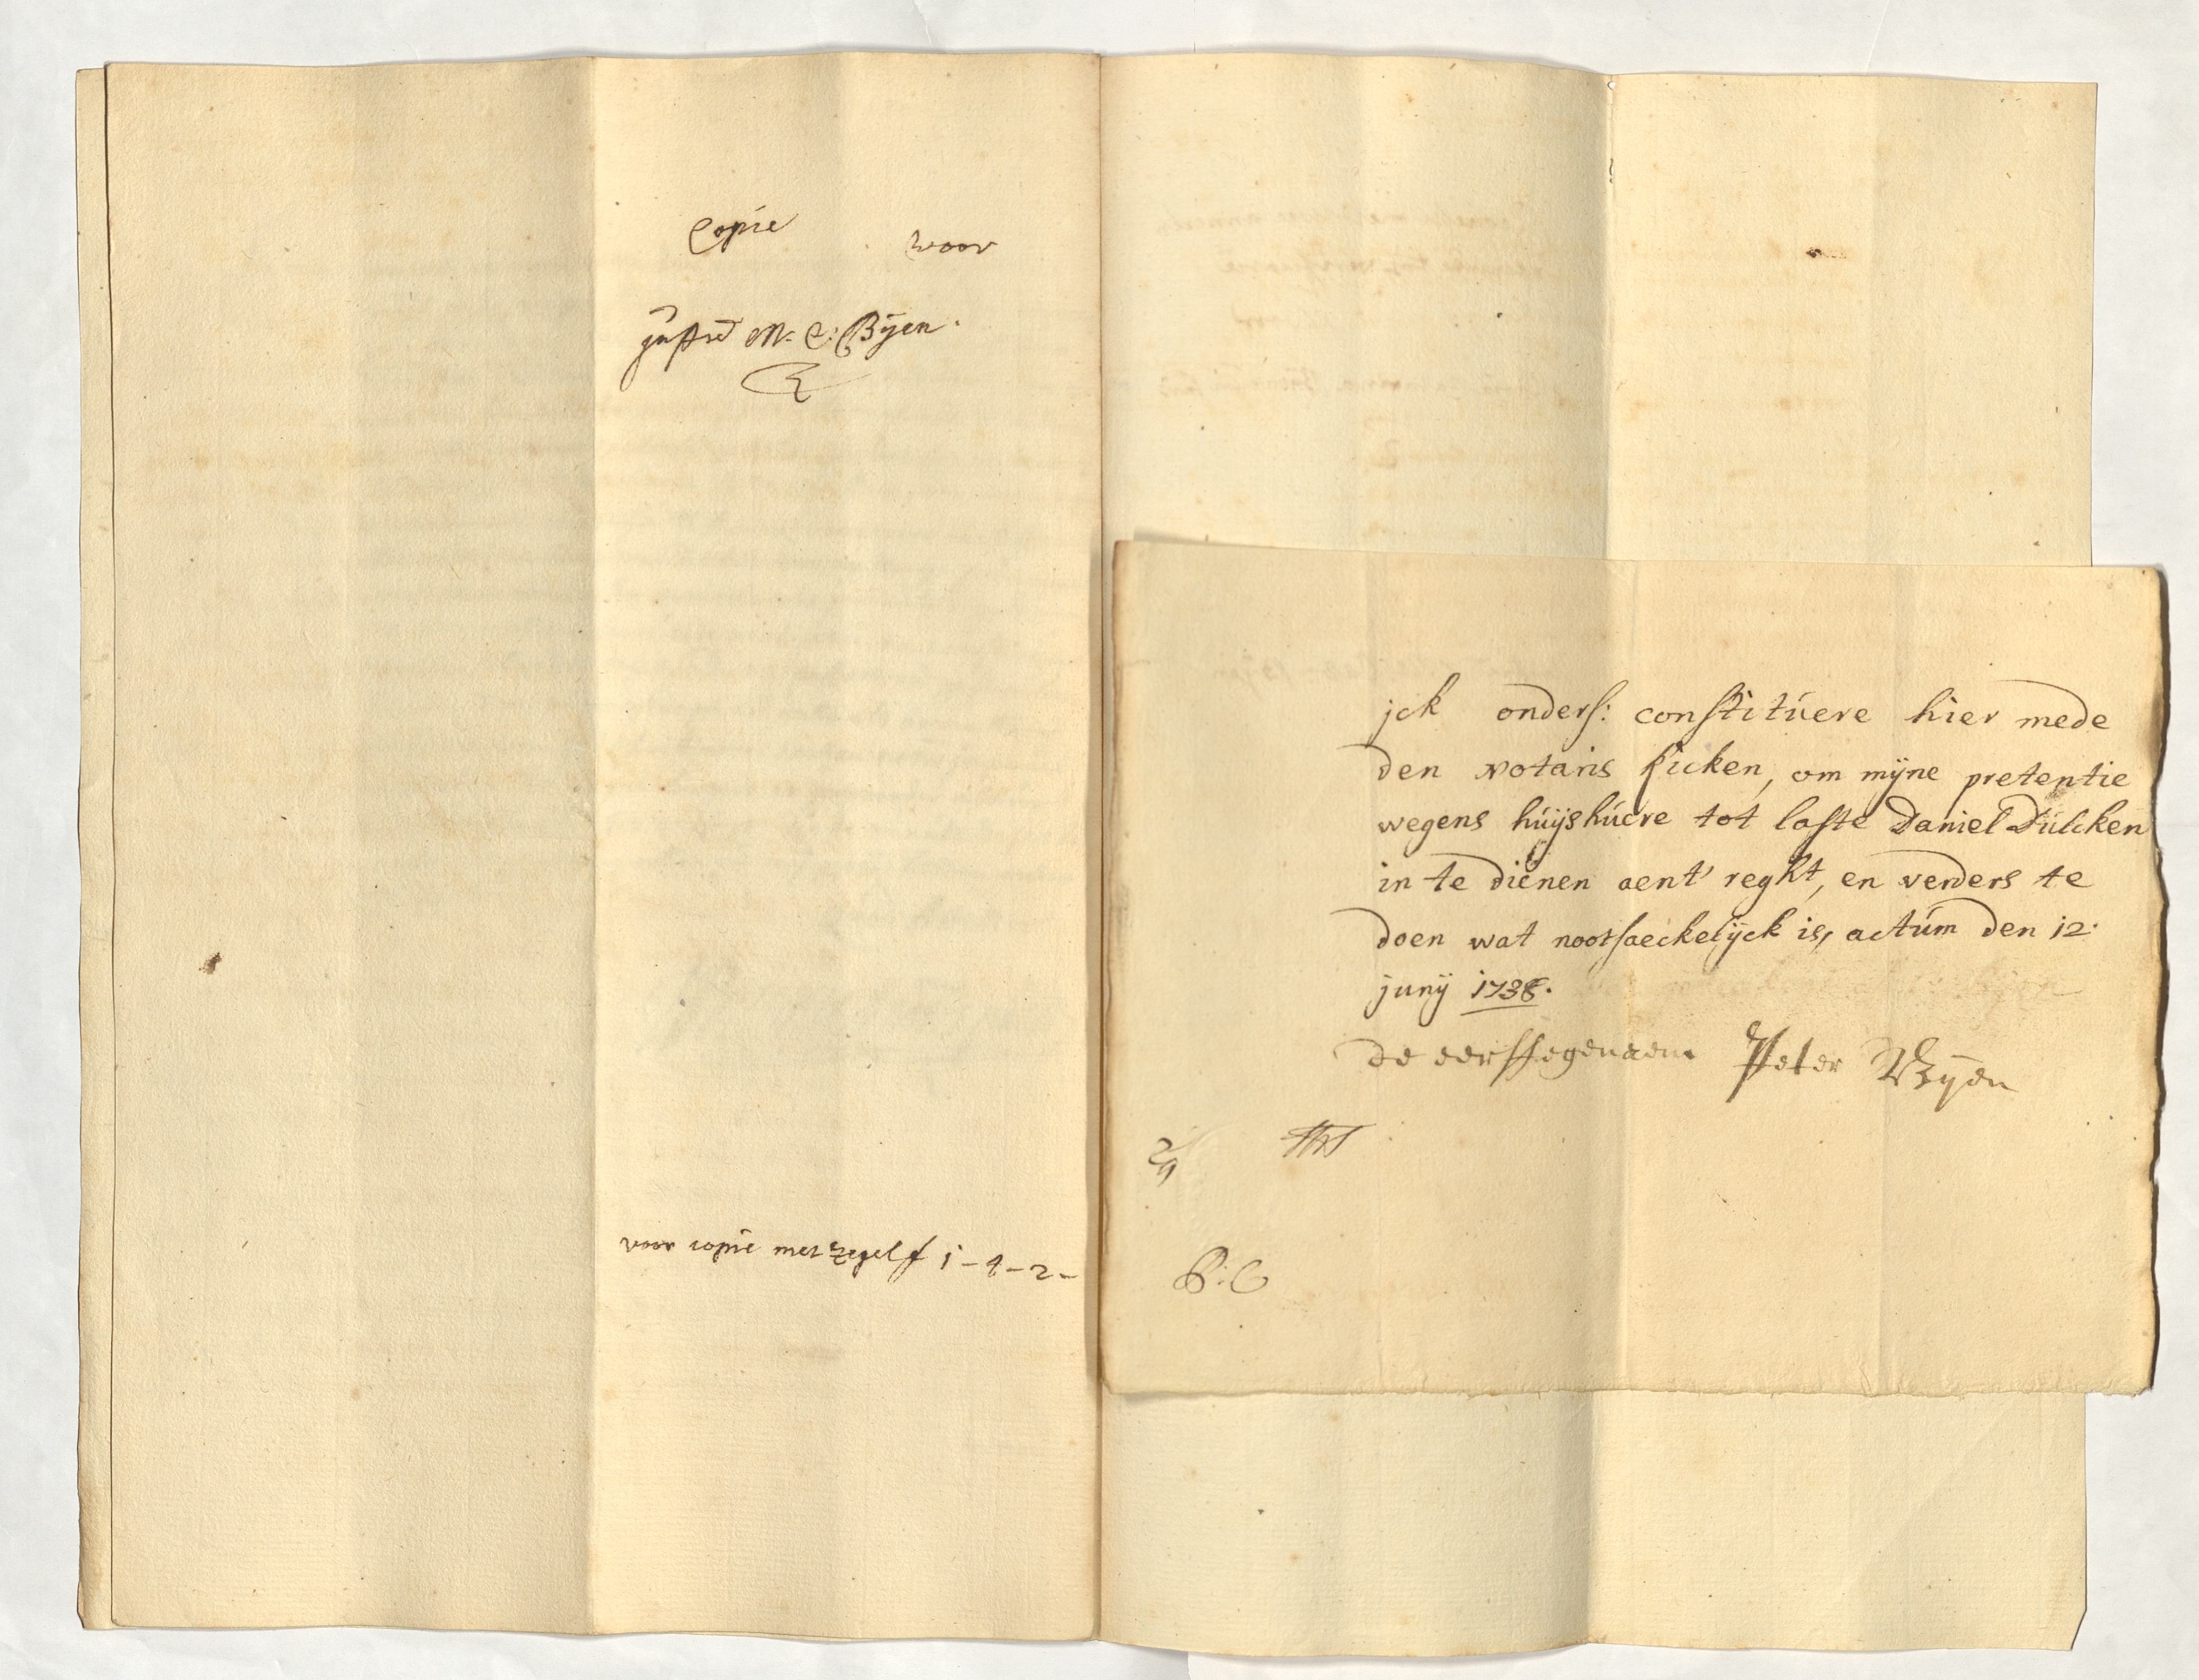 Copie voor
Juffre M: C: Bijen.
voor copie met zegel f 1-4-2-
jck onders: constitúere hier mede
den notaris ficken, om mijne pretentie
wegens húijshúere tot laste Daniel Dulcken
in te dienen aent' reght, en verders te
doen wat nootsaeckelijck is, actúm den 12.
junij 1738.
de eerstegenaem Peter Bijen
P: C